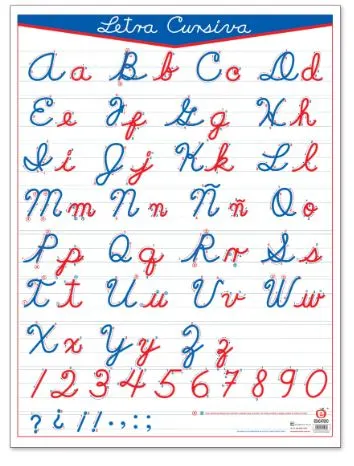 Letra Cursiva
A a B b C c D d
E e F f G g H h
I i J j K k L l
M m N n Ñ ñ O o
P p Q q R r S s
T t U u V v W w
X x Y y Z z
1 2 3 4 5 6 7 8 9 0
? ¿ ¡ ! . , : ;